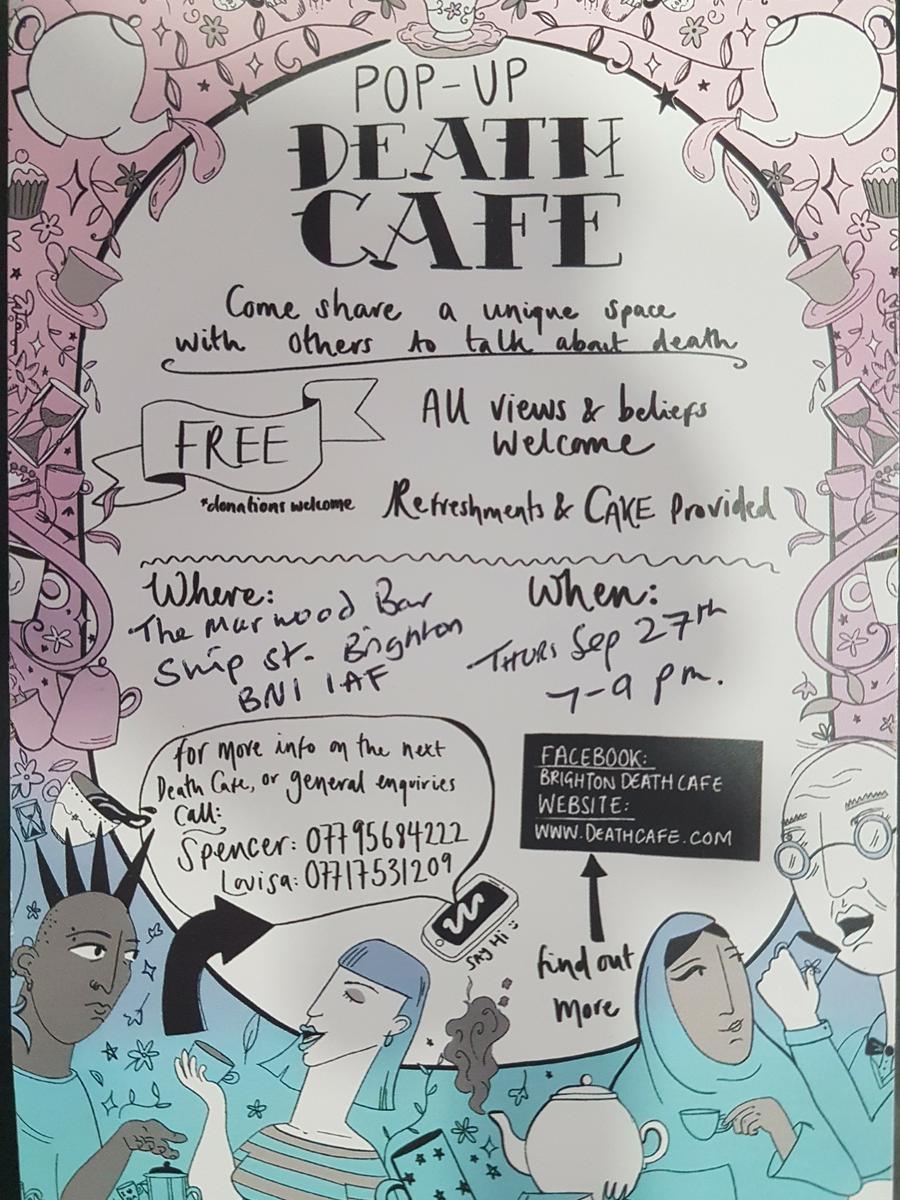 POP-UP
DEATH
CAFE
Come share a unique space
with others to talk about death
FREE
*donations welcome
All views & beliefs
Welcome
Refreshments & CAKE Provided
Where:
The Marwood Bar
Ship St. Brighton
BN1 1AF
When:
THURS Sep 27th
7-9 pm.
for more info on the next
Death Cafe, or general enquiries
Call:
Spencer: 07795684222
Lovisa: 07717531209
SAY Hi :)
FACEBOOK:
BRIGHTON DEATH CAFE
WEBSITE:
WWW.DEATHCAFE.COM
find out
more